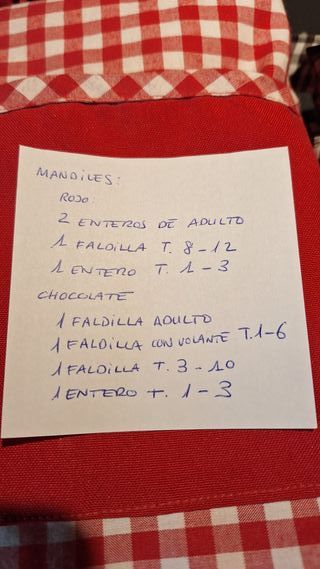 MANDILES:
ROJO:
2 ENTEROS DE ADULTO
1 FALDILLA T. 8-12
1 ENTERO T. 1-3
CHOCOLATE
1 FALDILLA ADULTO
1 FALDILLA CON VOLANTE T.1-6
1 FALDILLA T. 3-10
1 ENTERO T. 1-3